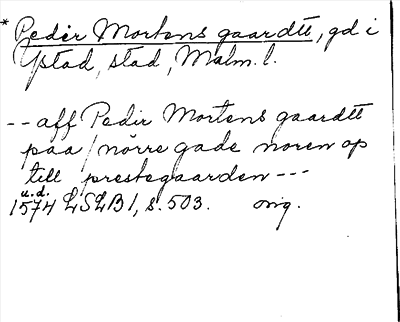 * Peder Mortens gaardtt, gd i
Ystad, stad, Malm. l.
-- aff Peder Mortens gaardtt
paa / nörre gade noren op
till prestegaarden ---
u.d.
1574 LSLB 1, s. 503. orig.